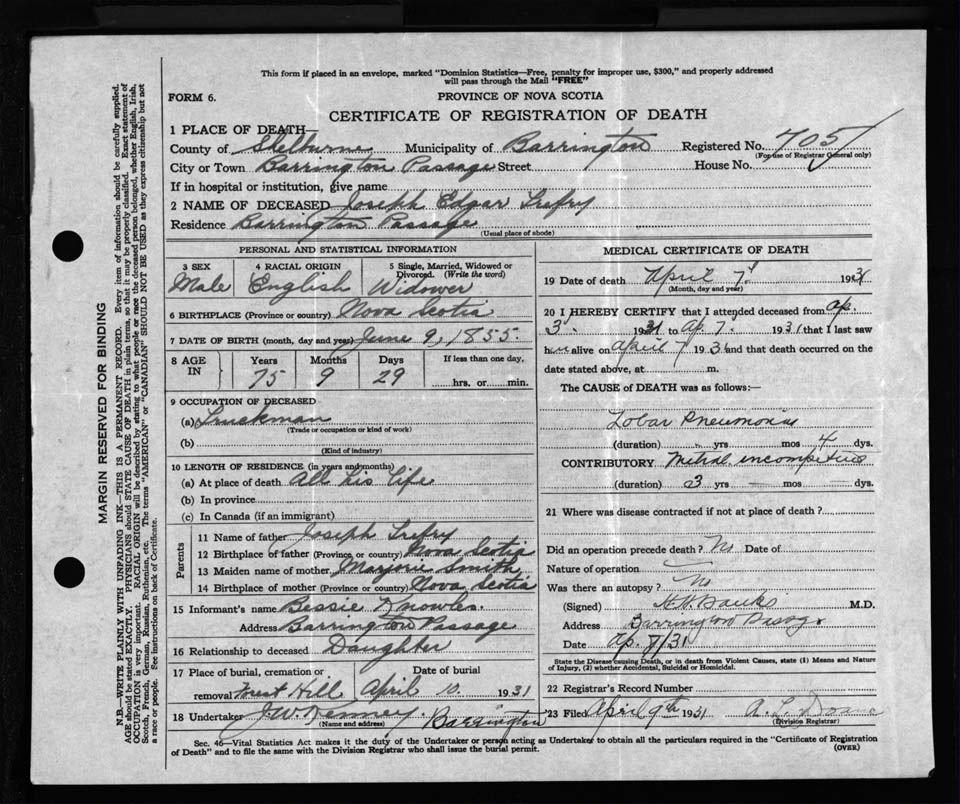 This form if placed in an envelope, marked "Dominion Statistics—Free, penalty for improper use, $300," and properly addressed
will pass through the Mail "FREE"
FORM 6.
PROVINCE OF NOVA SCOTIA
CERTIFICATE OF REGISTRATION OF DEATH
1 PLACE OF DEATH—
County of Shelburne Municipality of Barrington Registered No. 705
(For use of Registrar General only)
City or Town Barrington Passage Street House No.
If in hospital or institution, give name
2 NAME OF DECEASED Joseph Edgar Trefry
Residence Barrington Passage
(Usual place of abode)
PERSONAL AND STATISTICAL INFORMATION
3 SEX 4 RACIAL ORIGIN 5 Single, Married, Widowed or
Divorced. (Write the word)
Male English Widower
6 BIRTHPLACE (Province or country) Nova Scotia
7 DATE OF BIRTH (month, day and year) June 9, 1855.
8 AGE IN Years Months Days If less than one day,
75 9 29 hrs. or min.
9 OCCUPATION OF DECEASED
(a) Truckman
(Trade or occupation or kind of work)
(b)
(Kind of industry)
10 LENGTH OF RESIDENCE (in years and months)
(a) At place of death All his life
(b) In province
(c) In Canada (if an immigrant)
Parents
11 Name of father Joseph Trefry
12 Birthplace of father (Province or country) Nova Scotia
13 Maiden name of mother Marjorie Smith
14 Birthplace of mother (Province or country) Nova Scotia
15 Informant's name Bessie Knowles.
Address Barrington Passage
16 Relationship to deceased Daughter
17 Place of burial, cremation or Date of burial
removal West Hill April 10 1931
18 Undertaker J.W. Kenney, Barrington
(Name and address)
MEDICAL CERTIFICATE OF DEATH
19 Date of death April 7 1931
(Month, day and year)
20 I HEREBY CERTIFY that I attended deceased from Ap.
3. 1931 to Ap 7. 1931 that I last saw
him alive on April 7 1931 and that death occurred on the
date stated above, at m.
The CAUSE of DEATH was as follows:—
Lobar Pneumonia
(duration) – yrs mos 4 dys.
CONTRIBUTORY Mitral incompetence
(duration) 3 yrs — mos — dys.
21 Where was disease contracted if not at place of death?
Did an operation precede death? No Date of
Nature of operation
Was there an autopsy? No
(Signed) H.H. Banks M.D.
Address Barrington Passage
Date Ap. 7/31
State the Disease causing Death, or in death from Violent Causes, state (1) Means and Nature
of Injury, (2) whether Accidental, Suicidal or Homicidal.
22 Registrar's Record Number
23 Filed April 9th 1931 A. L. Doane
(Division Registrar)
Sec. 46—Vital Statistics Act makes it the duty of the Undertaker or person acting as Undertaker to obtain all the particulars required in the "Certificate of Registration
of Death" and to file the same with the Division Registrar who shall issue the burial permit.
(OVER)
MARGIN RESERVED FOR BINDING
N.B.—WRITE PLAINLY WITH UNFADING INK—THIS IS A PERMANENT RECORD. Every item of information should be carefully supplied.
AGE should be stated EXACTLY. PHYSICIANS should STATE CAUSE OF DEATH in plain terms, so that it may be properly classified. Exact statement of
OCCUPATION is very important. RACIAL ORIGIN will be described by stating to what people or race the deceased person belonged, whether English, Irish,
Scotch, French, German, Russian, Ruthenian, etc. The terms "AMERICAN" or "CANADIAN" SHOULD NOT BE USED as they express citizenship but not
a race or people. See instructions on back of Certificate.